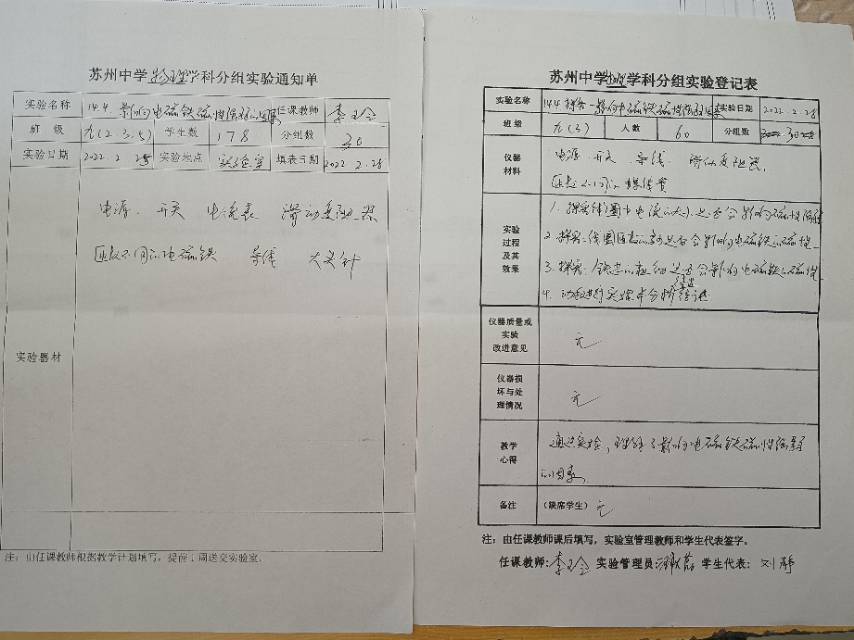 苏州中学物理学科分组实验通知单
实验名称 14.4 影响电磁铁磁性强弱的因素 任课教师 李玉金
班级 九(2.3.5) 学生数 178 分组数 30
实验日期 2022.2.28 实验地点 实验室 填表日期 2022.2.28
电源 开关 电流表 滑动变阻器
匝数不同的电磁铁 导线 大头针
实验器材
注:由任课教师根据教学计划填写,提前1周送交实验室。
苏州中学物理学科分组实验登记表
实验名称 14.4 探究影响电磁铁磁性强弱因素 实验日期 2022.2.28
班级 九(3) 人数 60 分组数 30
仪器材料
电源 开关 导线 滑动变阻器
匝数不同的
实验过程及其效果
1. 探究线圈中电流的大小是否会影响磁性强弱
2. 探究线圈匝数的多少是否会影响电磁铁的磁性
3. 探究铁芯的粗细是否会影响电磁铁的磁性
4. 动手进行实验并分析结论
仪器质量或实验改进意见 无
仪器损坏与处理情况 无
教学心得
通过实验,理解了影响电磁铁磁性强弱
的因素
备注 (缺席学生) 无
注:由任课教师课后填写,实验室管理教师和学生代表签字。
任课教师:李玉金 实验管理员: 学生代表: 刘静